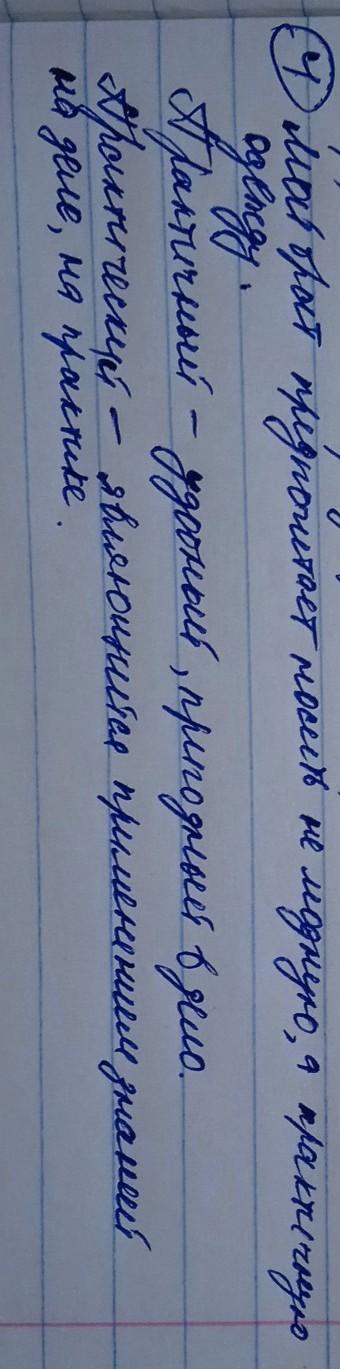 ④ Мой брат предпочитает носить не модную, а практичную
одежду.
Практичный – удобный, пригодный в дело.
Практический – являющийся применением знаний
на деле, на практике.